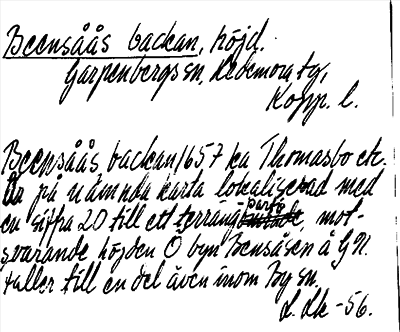 Beensåås backan, höjd.
Garpenbergs sn, Hedemora tg,
Kopp. l.
Beensåås backan 1657 ka Thomasbo etc.
Är på nämnda karta lokaliserad med
en siffra 20 till ett terrängparti, mot-
svarande höjden Ö byn Bensåsen å GK.
Faller till en del även inom By sn.
-56.